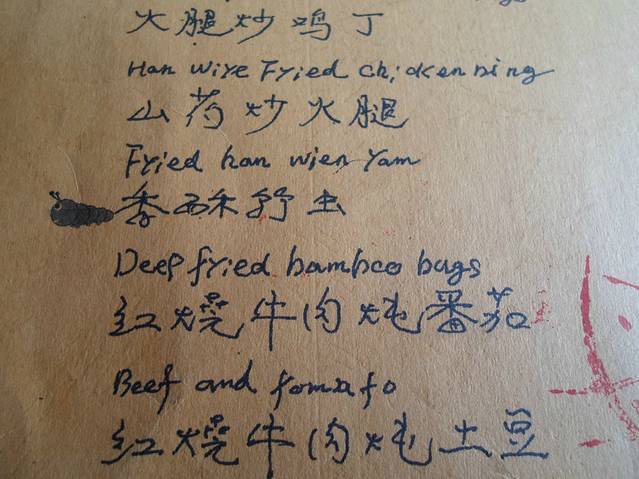 火腿炒鸡丁
Han wiye Fried chicken ning
山药炒火腿
Fried han wien Yam
香酥竹虫
Deep fried bamboo bugs
红烧牛肉炖番茄
Beef and fomato
红烧牛肉炖土豆